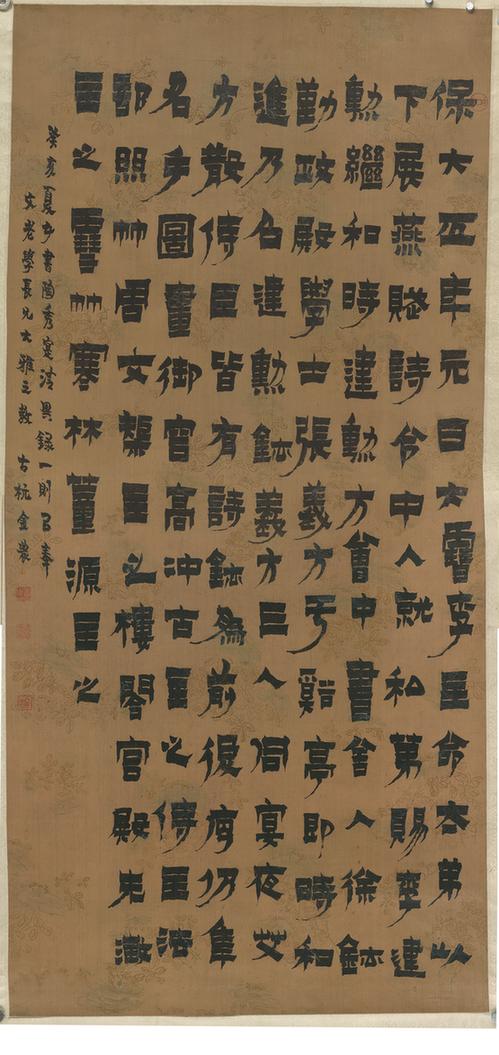 保大五年元日大雪李主命太弟以
下展燕賦詩令中人就私第賜李建
勳繼和時建勳方會中書舍人徐鉉
勤政殿學士張義方于谿亭即時和
進乃召建勳鉉義方三人同宴夜艾
方散侍臣皆有詩鉉為前後序仍集
名手圖畫御容高沖古主之侍臣法
部絲竹周文榘主之樓閣宮殿朱澂
主之雪竹寒林董源主之
癸亥夏五書陶秀寔清異録一則㠯奉
文老學長兄大雅之教 古杭金農